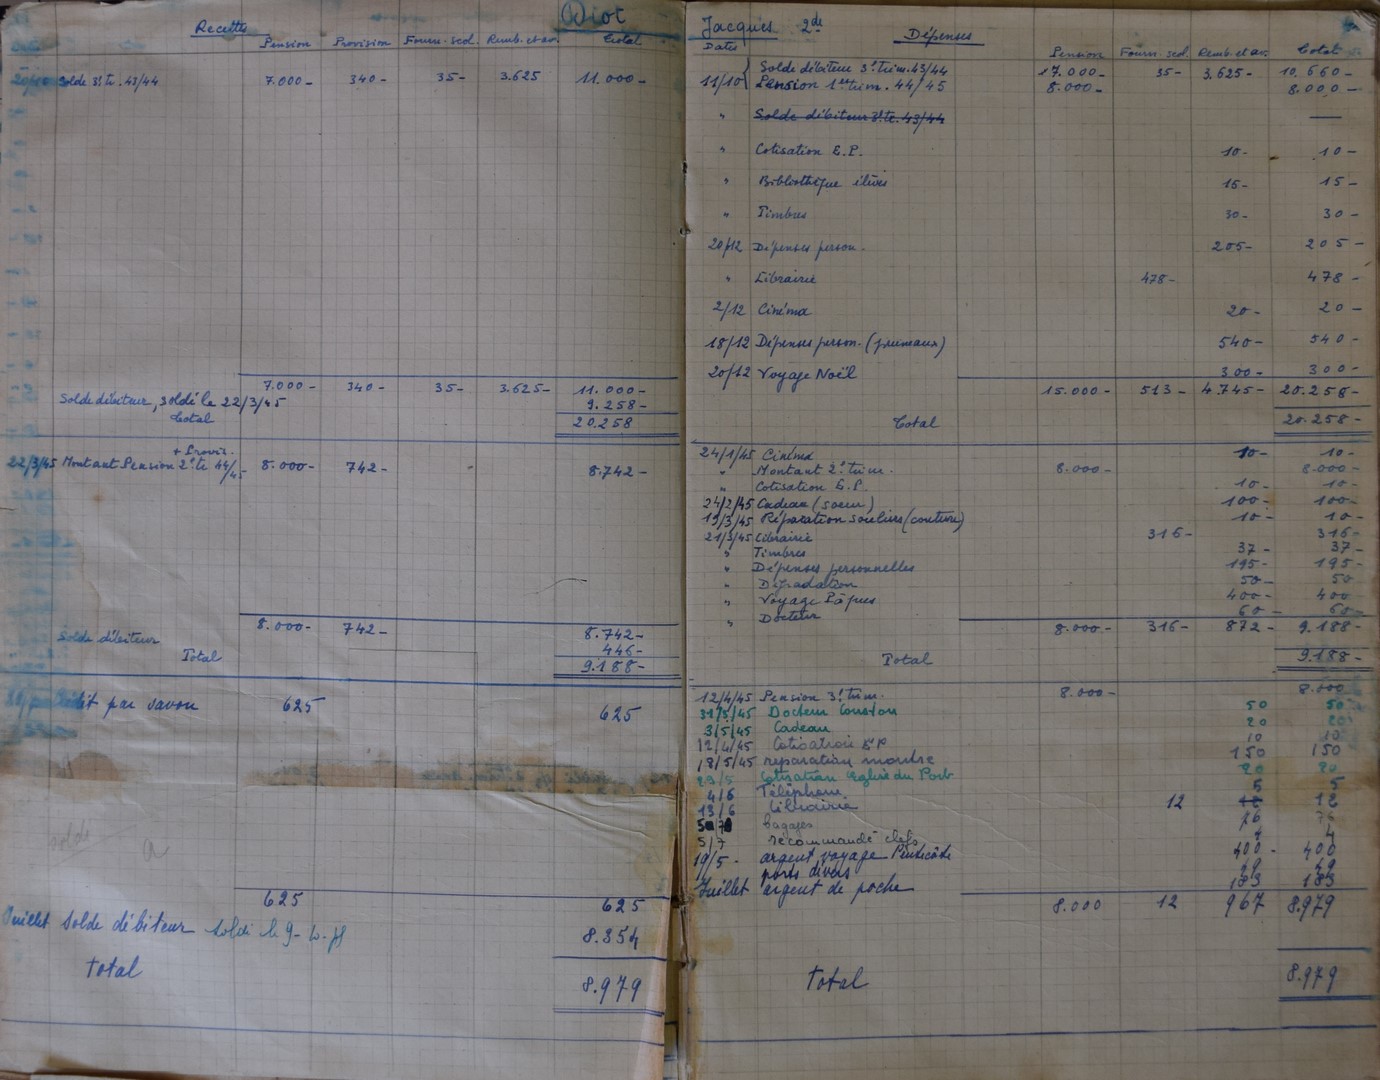 Diot
Recettes
Pension Provision Fourn. scol. Remb. et av. Total
Solde 3e te. 43/44 7.000- 340- 35- 3.625 11.000-
7.000- 340- 35- 3.625- 11.000-
Solde débiteur, soldé le 22/3/45 9.258-
Total 20.258
+ Provis.
22/3/45 Montant Pension 2e te 44/45 8.000- 742- 8.742-
8.000- 742- 8.742-
Solde débiteur 446-
Total 9.188-
Crédit par savon 625 625
solde
625 625
Juillet Solde débiteur soldé le 8.354
Total 8.979
Jacques 2de
Dépenses
Dates Pension Fourn. scol. Remb. et av. Total
Solde débiteur 3e trim. 43/44 7.000- 35- 3.625- 10.660-
11/10 Pension 1er trim. 44/45 8.000- 8.000-
" Solde débiteur 3e te. 43/44 —
" Cotisation E.P. 10- 10-
" Bibliothèque élèves 15- 15-
" Timbres 30- 30-
20/12 Dépenses person. 205- 205-
" Librairie 478- 478-
2/12 Cinéma 20- 20-
18/12 Dépenses person. (pruneaux) 540- 540-
20/12 Voyage Noël 300- 300-
15.000- 513- 4.745- 20.258-
Total 20.258-
24/1/45 Cinéma 10- 10-
" Montant 2e trim. 8.000- 8.000-
" Cotisation E.P. 10- 10-
24/2/45 Cadeau (soeur) 100- 100-
19/3/45 Réparation souliers (couture) 10- 10-
21/3/45 Librairie 316- 316-
" Timbres 37- 37-
" Dépenses personnelles 195- 195-
" Dégradation 50- 50
" Voyage Pâques 400- 400
" Docteur 60- 60-
8.000- 316- 872- 9.188-
Total 9.188-
12/4/45 Pension 3e trim. 8.000- 8.000
31/5/45 Docteur 50 50
3/5/45 Cadeau 20 20
12/4/45 Cotisation EP 10 10
18/5/45 réparation montre 150 150
29/5 Cotisation église du Port 20 20
4/6 Téléphone 5 5
13/6 Librairie 12 12 12
bagages 76 76
5/7 recommandé clefs 4 4
19/5- argent voyage Pentecôte 400- 400
ports divers 49 49
Juillet argent de poche 183 183
8.000 12 967 8.979
Total 8.979